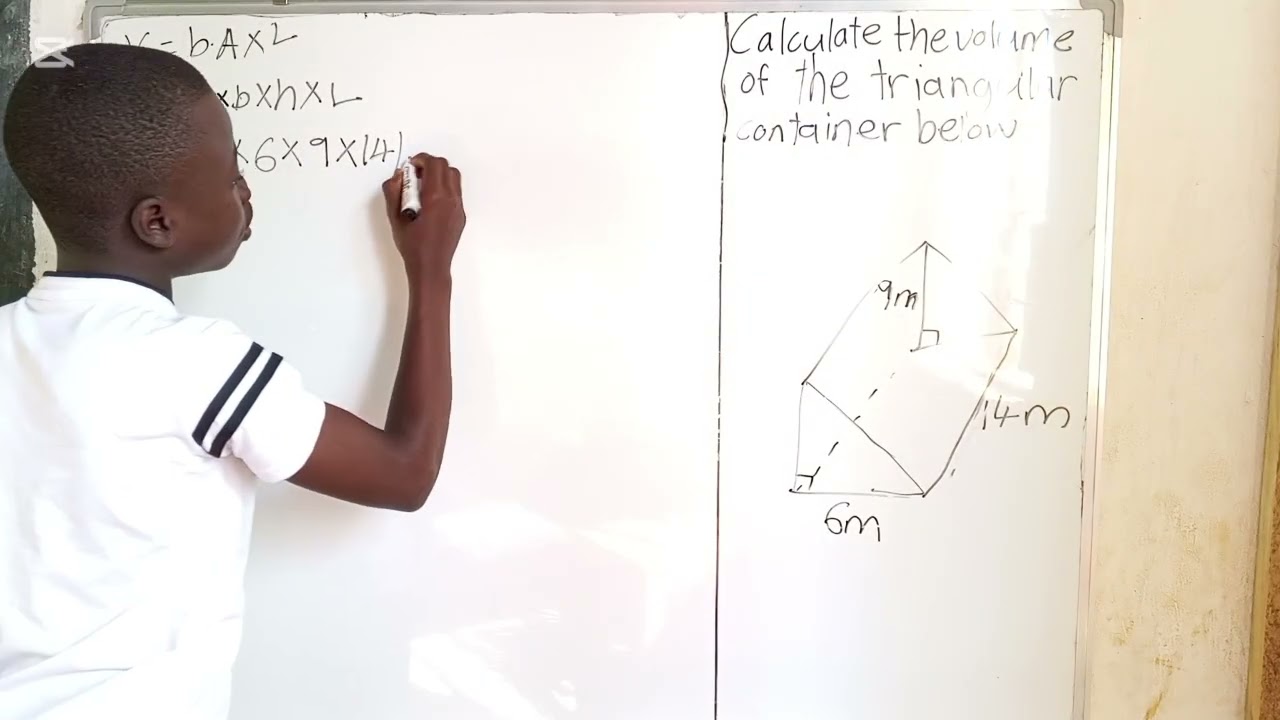 V = b.A×L
×b×h×L
×6×9×14
Calculate the volume
of the triangular
container below
9m
14m
6m